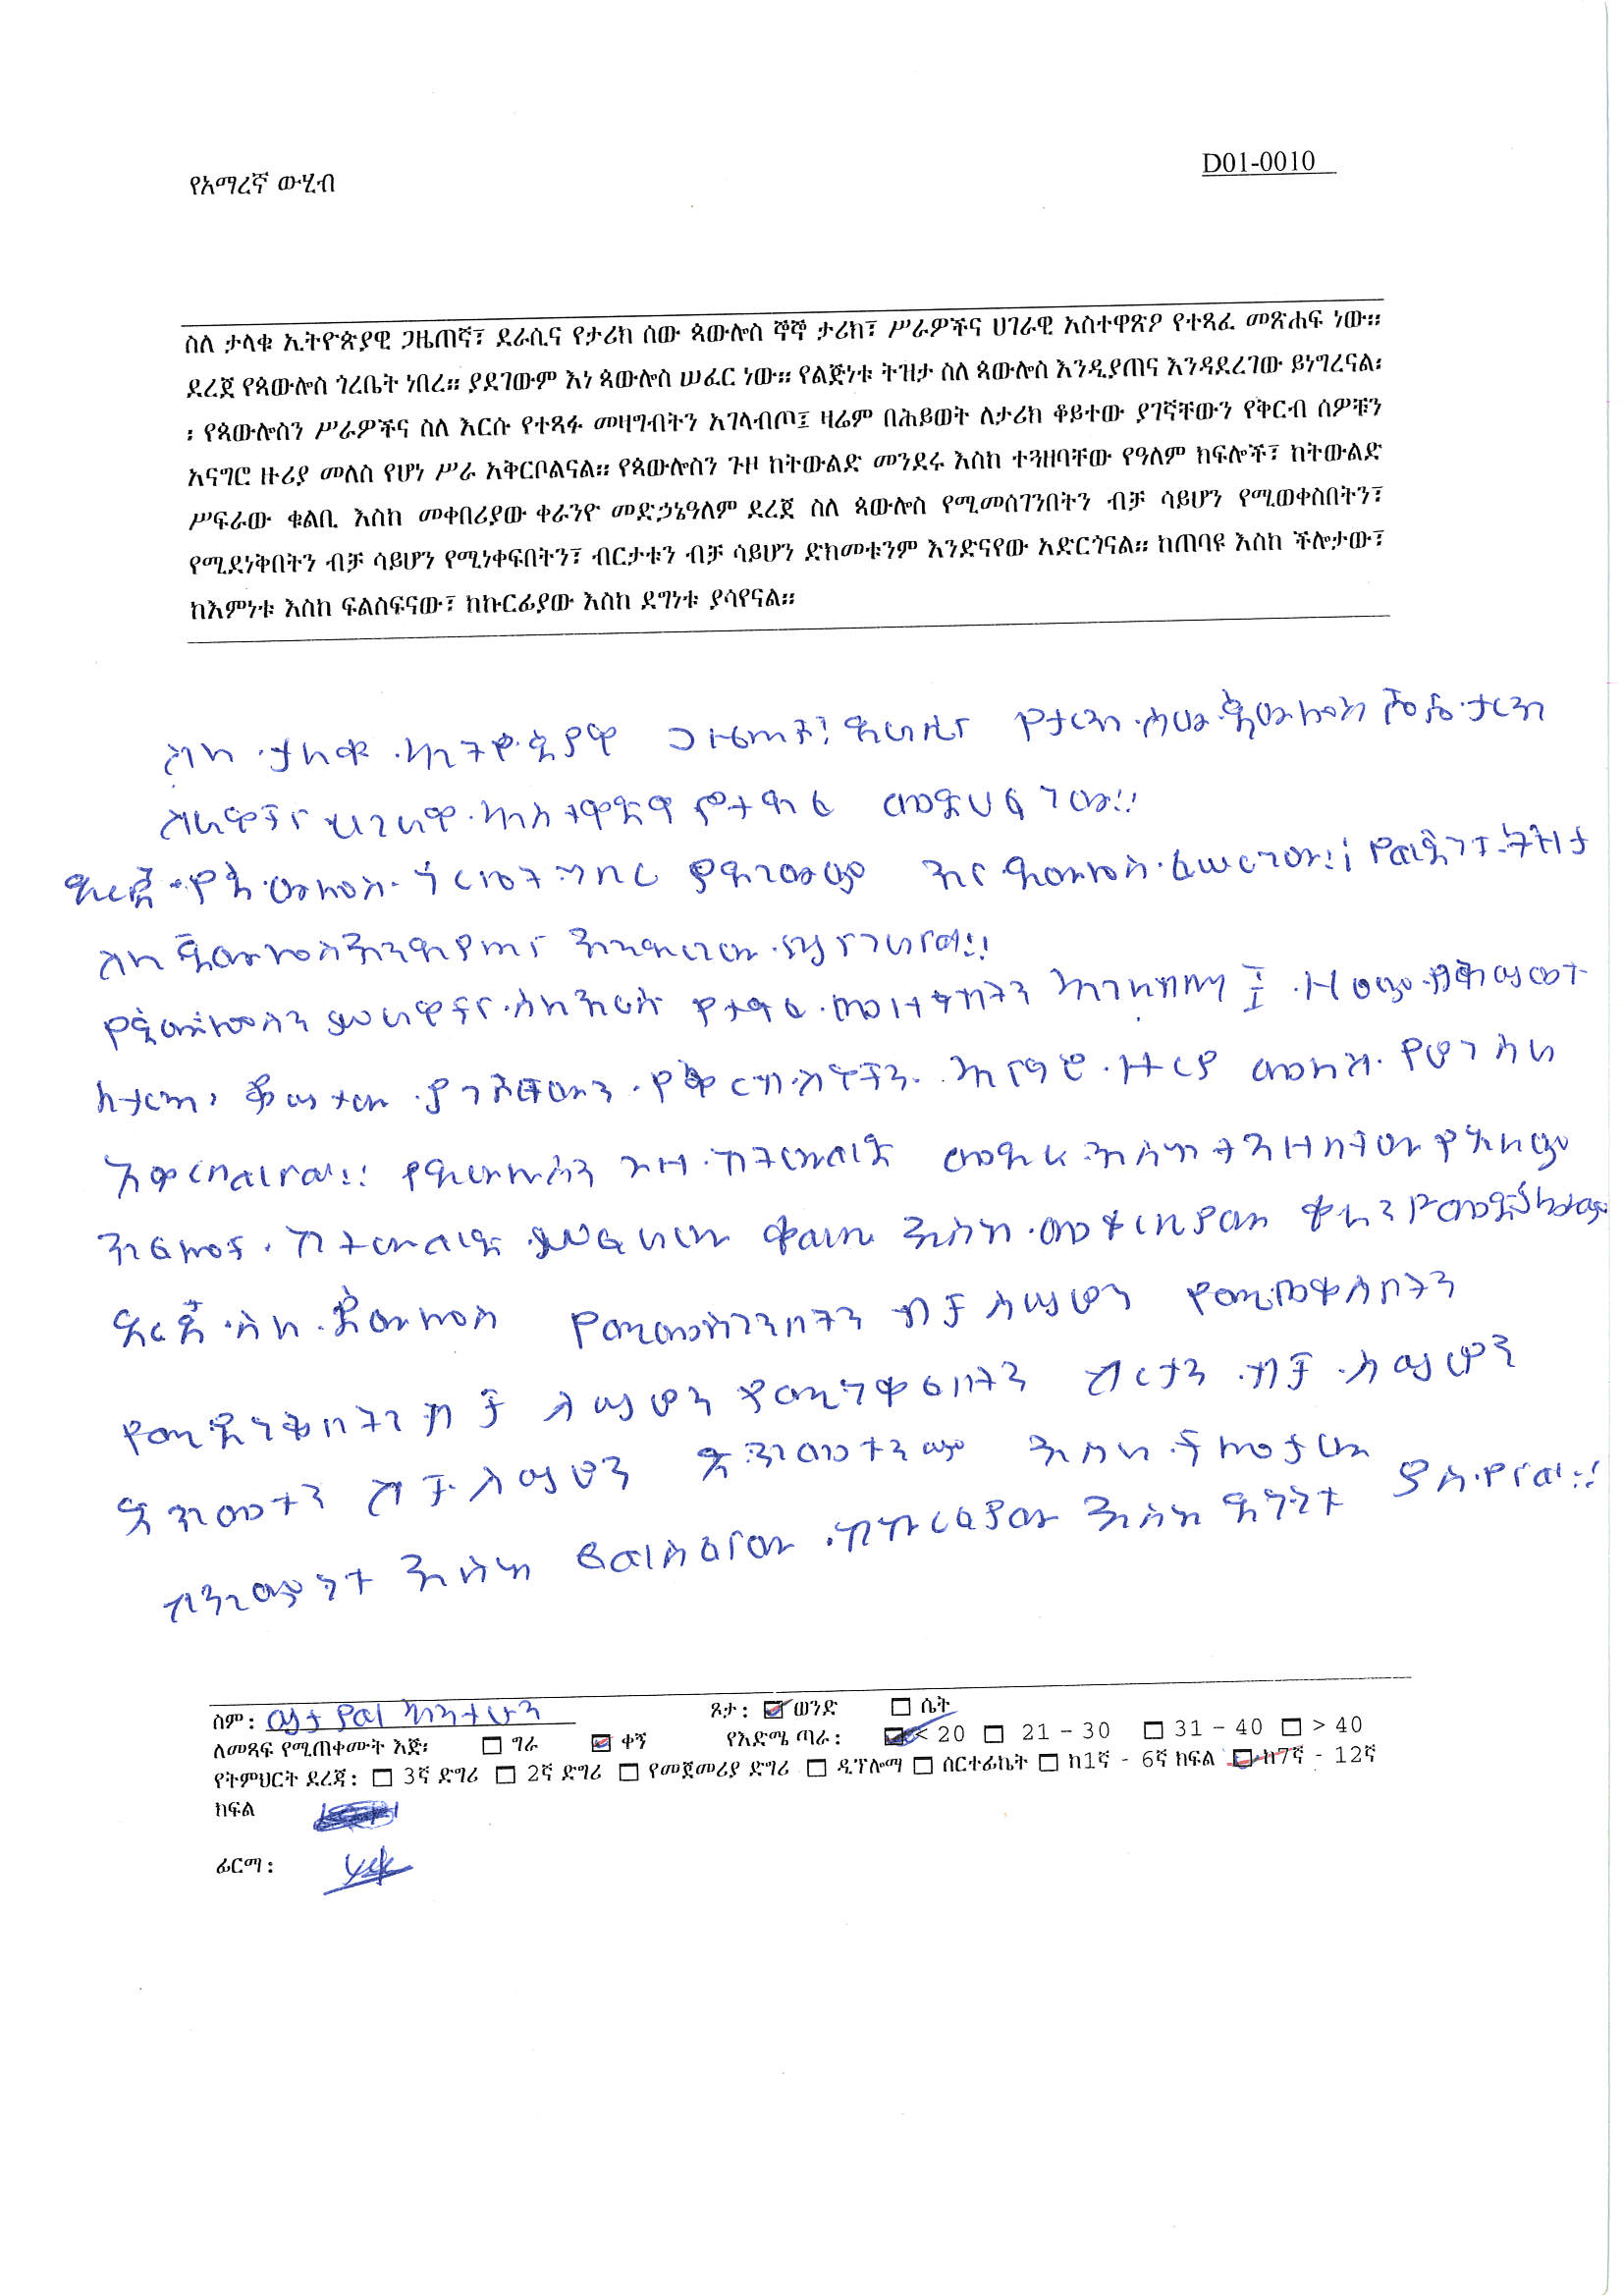 የአማረኛ ውሂብ
D01-0010
ስለ ታላቁ ኢትዮጵያዊ ጋዜጠኛ፣ ደራሲና የታሪክ ሰው ጳውሎስ ኞኞ ታሪክ፣ ሥራዎችና ሀገራዊ አስተዋጽዖ የተጻፈ መጽሐፍ ነው፡፡
ደረጀ የጳውሎስ ጎረቤት ነበረ፡፡ ያደገውም እነ ጳውሎስ ሠፈር ነው፡፡ የልጅነቱ ትዝታ ስለ ጳውሎስ እንዲያጠና እንዳደረገው ይነግረናል፡
፡ የጳውሎስን ሥራዎችና ስለ እርሱ የተጻፉ መዛግብትን አገላብጦ፤ ዛሬም በሕይወት ለታሪክ ቆይተው ያገኛቸውን የቅርብ ሰዎቹን
አናግሮ ዙሪያ መለስ የሆነ ሥራ አቅርቦልናል፡፡ የጳውሎስን ጉዞ ከትውልድ መንደሩ እስከ ተጓዘባቸው የዓለም ክፍሎች፣ ከትውልድ
ሥፍራው ቁልቢ እስከ መቀበሪያው ቀራንዮ መድኃኔዓለም ደረጀ ስለ ጳውሎስ የሚመሰገንበትን ብቻ ሳይሆን የሚወቀስበትን፣
የሚደነቅበትን ብቻ ሳይሆን የሚነቀፍበትን፣ ብርታቱን ብቻ ሳይሆን ድክመቱንም እንድናየው አድርጎናል፡፡ ከጠባዩ እስከ ችሎታው፣
ከእምነቱ እስከ ፍልስፍናው፣ ከኩርፊያው እስከ ደግነቱ ያሳየናል፡፡
ስለ ታላቁ ኢትዮጵያዊ ጋዜጠኛ፣ ደራሲና የታሪክ ሰው ጳውሎስ ኞኞ ታሪክ
ሀገራዊ አስተዋጽዖ የተጻፈ መጽሀፍ ነው፡፡
ደረጀ የጳውሎስ ጎረቤት ነበረ ያደገውም እነ ጳውሎስ ሠፈር ነው፡፡ የልጅነቱ ትዝታ
ስለ ጳውሎስ እንዲያጠና እንዳደረገው ይነግረናል፡፡
የጳውሎስን ሥራዎችና ስለ እርሱ የተጻፉ መዛግብትን አገላብጦ፤ ዛሬም በሕይወት
ለታሪክ ቆይተው ያገኛቸውን የቅርብ ሰዎቹን አናግሮ ዙሪያ መለስ የሆነ ስራ
አቅርቦልናል፡፡ የጳውሎስን ጉዞ ከትውልድ መንደሩ እስከ ተጓዘባቸው የአለም
ክፍሎች ከትውልድ ሥፍራው ቁልቢ እስከ መቀበሪያው ቀራንዮ
ደረጀ ስለ ጳውሎስ የሚመሰገንበትን ብቻ ሳይሆን የሚወቀስበትን
የሚደነቅበትን ብቻ ሳይሆን የሚነቀፍበትን ብርታቱን ብቻ ሳይሆን
ብቻ ሳይሆን እስከ ችሎታው
እስከ ፍልስፍናው ከኩርፊያው እስከ ደግነቱ
ስም:
ጾታ: ወንድ ሴት
ለመጻፍ የሚጠቀሙት እጅ፡ ግራ ቀኝ የእድሜ ጣራ: < 20 21 - 30 31 - 40 > 40
የትምህርት ደረጃ: 3ኛ ድግሪ 2ኛ ድግሪ የመጀመሪያ ድግሪ ዲፕሎማ ሰርተፊኬት ከ1ኛ - 6ኛ ክፍል ከ7ኛ - 12ኛ
ክፍል
ፊርማ: